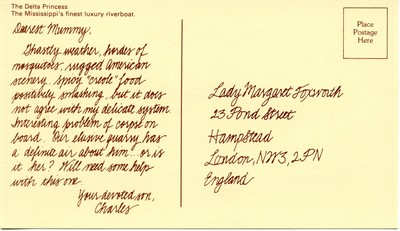 The Delta Princess
The Mississippi's finest luxury riverboat.
Place
Postage
Here
Dearest Mummy,
Ghastly weather, hordes of
mosquitoes, rugged American
scenery. Spicy "creole" food
positively smashing, but it does
not agree with my delicate system.
Interesting problem of corpse on
board. Our elusive quarry has
a definite air about him... or is
it her? Will need some help
with this one.
Your devoted son,
Charles
Lady Margaret Foxworth
23 Pond Street
Hampstead
London, NW3, 2PN
England